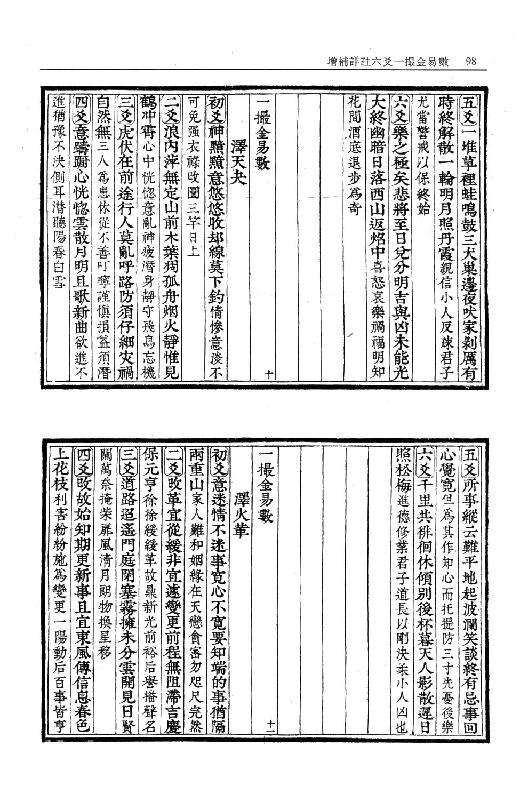 增補詳註六爻一撮金易數 98
五爻一堆草裡蛙鳴鼓三犬巢邊夜吠家剥厲有
時終解散一輪明月照丹霞親信小人反疎君子
尤當警戒以保終始
六爻樂之極矣悲將至日兌分明吉與凶未能光
大終幽暗日落西山返焰中喜怒哀樂禍福明知
花間酒底退步為奇
一撮金易數 十
澤天夬
初爻神黯黯意悠悠收却線莫下釣情慘意淡不
可免强衣祿收圖三竿日上
二爻浪內萍無定山前木葉凋孤舟烟火靜惟見
鶴冲霄心中恍惚意亂神疲潛身靜守飛鳥忘機
三爻虎伏在前途行人莫亂呼路防須仔細灾禍
自然無三人為患休從不善叮嚀謹慎損益須潛
四爻意躊躇心恍惚雲散月明且歌新曲欲進不
進猶豫不決側耳潛聽陽春白雪
五爻所事縱云難平地起波瀾笑談終有忌事回
心覺寬但為其作知心而托提防三寸先憂後樂
六爻千里共徘徊休傾別後杯暮天人影散遲日
照松梅進德修業君子道長以剛決柔小人凶也
一撮金易數 十一
澤火革
初爻意迷情不迷事寬心不寬要知端的事猶隔
兩重山家人難和姻緣在天戀貪客勿咫尺完然
二爻改革宜從緩非宜遽變更前程無阻滯吉慶
保元亨徐徐緩緩革故鼎新光前裕後譽播聲名
三爻道路迢遥門庭閉塞霧擁未分雲開見日賢
關萬叅掩柴扉風清月朗物換星移
四爻改故始知期更新事且宜東風傳信息春色
上花枝利害紛紛施為變更一陽動后百事皆亨